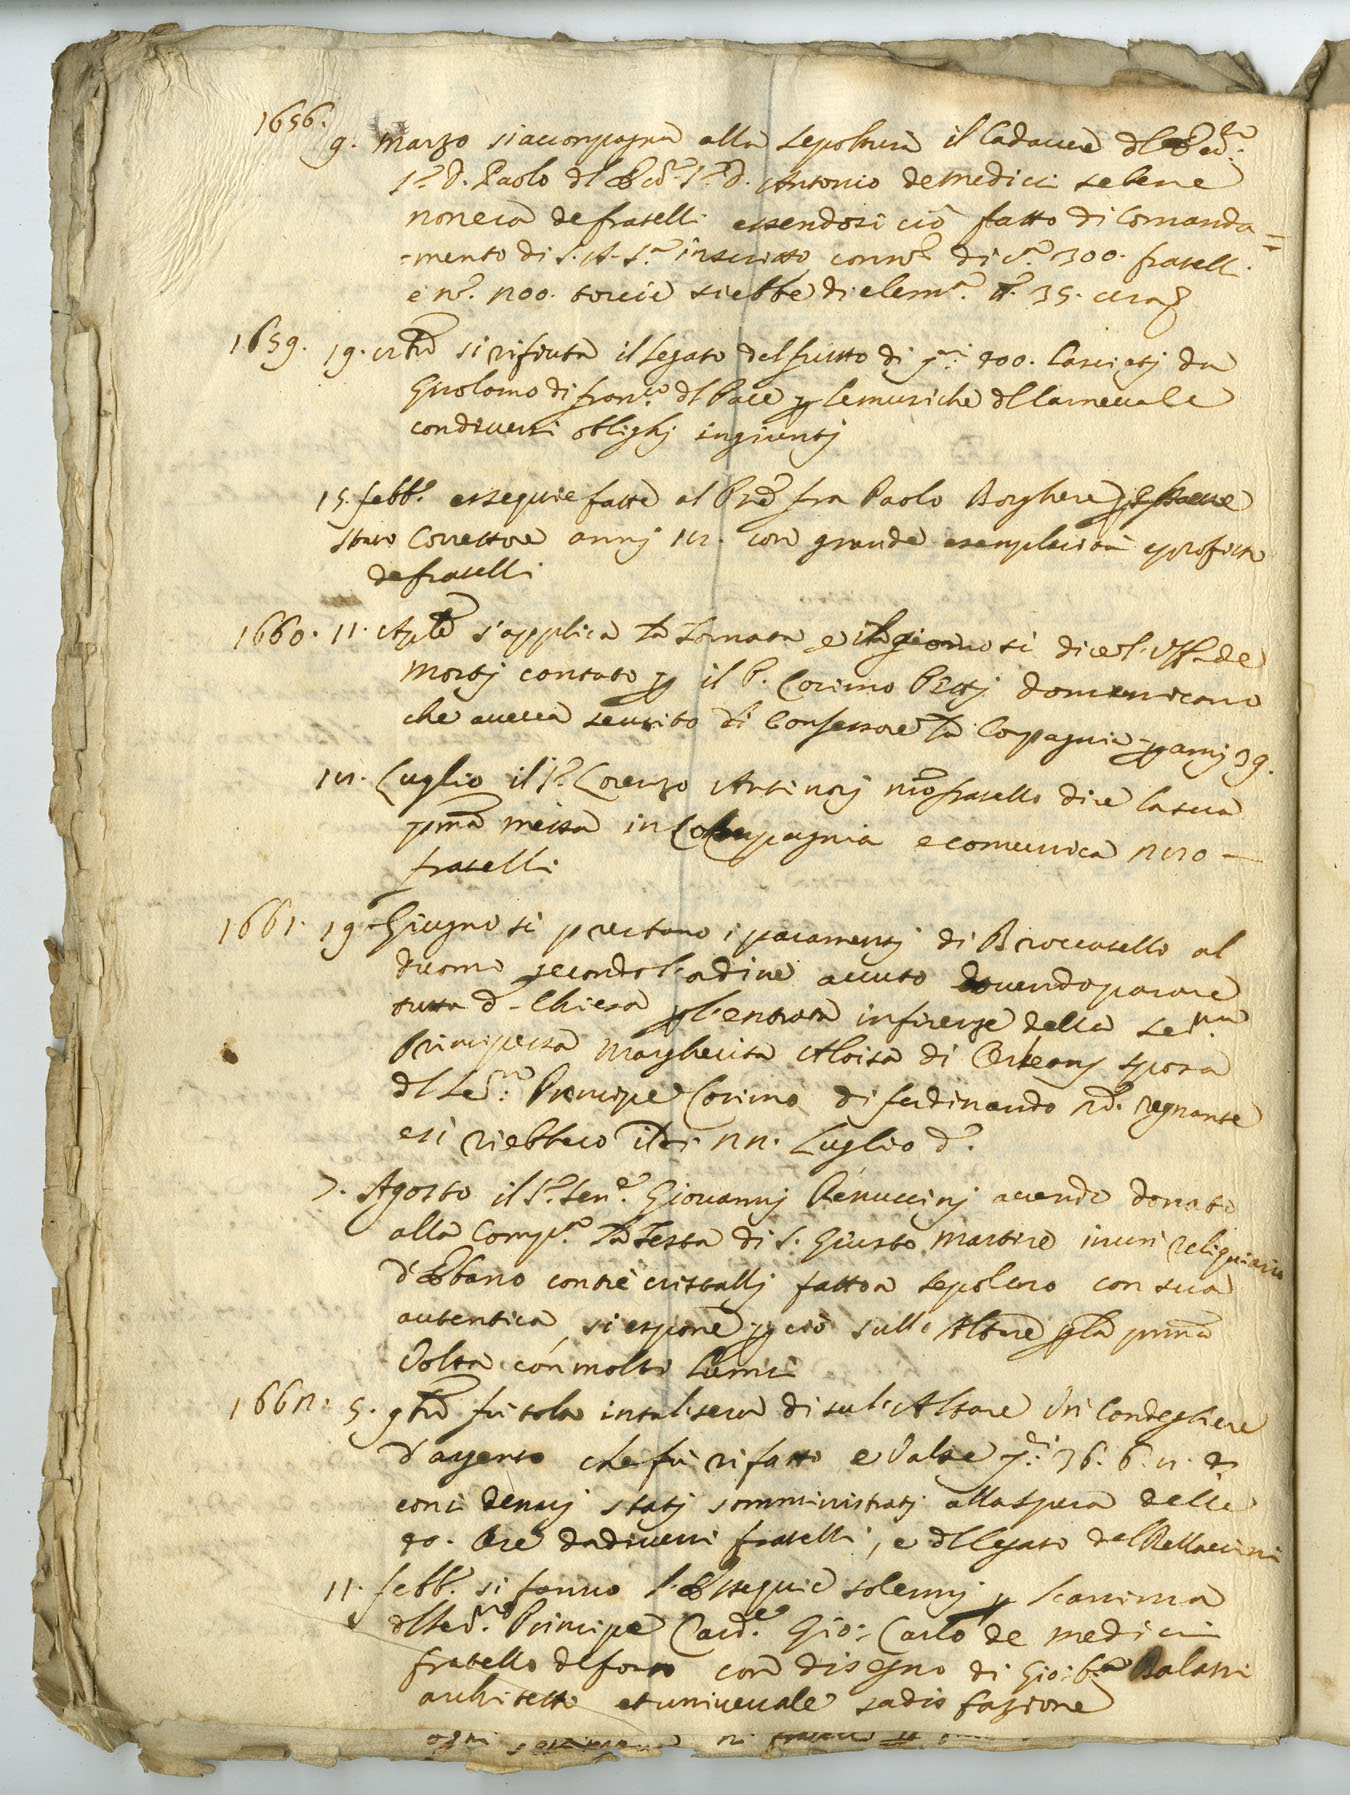 1656.
9. Marzo si accompagna alla sepoltura il Cadavere dl
Sr. D. Paolo dl Sr. D. Antonio de Medici sebene
non era de fratelli essendosi ciò fatto di Comanda=
=mento di S. A. Sr. di 300. fratelli
e no. 200. torcie si ebbe di elemna. 35. cera
1659. 19. si rifiuta il legato del frutto di 400. lasciatj da
Girolamo di Franco. dl Pace p le musiche dl Carnevale
con diversi oblighj ingiuntj
15. febbo. essequie fatte al Pre fra Paolo Borghere
stato Correttore annj 12. con grande esemplarità e profitto
de fratelli
1660. 11. Aple s'applica la Tornata e il giorno si dice l'Uff. de
Mortj cantato p il P. Cosimo Pittj domenicano
che aveva servito di Confessore la Compagnia p annj 39.
12. Luglio il Sr. Lorenzo Antinorj nro fratello dice la sua
pma messa in Compagnia e comunica 220 -
fratelli
1661. 19. Giugno si prestano i paramentj di Broccatello al
duomo secondo l'ordine avuto dovendo parare
tutta da. Chiesa p l'entrata in firenze della Serma
Principessa Margherita Aloisa di Orleans sposa
dl Sermo. Principe Cosimo di ferdinando 2do. regnante
e si riebbero 22. Luglio do.
7. Agosto il Sr. Senre. Giovannj Renuccinj avendo donato
alla Compa. la Testa di S. Giusto Martire in un reliquiario
d'Ebano con tre cristallj fatto a sepolcro con sua
autentica, si espone p ciò sull' Altare p la prima
Volta con molti lumi
1662. 5. fù tolto in tal sera di sul' Altare Un Candegliere
d'argento che fù rifatto e valse 36. 6. 2.
con i denarj statj somministratj alla spera delle
40. Ore da diversi fratelli, e dl legato del Bellaccini
11. febbo. si fanno l'Essequie solennj p l'anima
dl Sermo. Principe Carde. Gio: Carlo de Medici
fratello defonto con disegno di Gio: Bata Balatri
architetto et universale sadisfazione